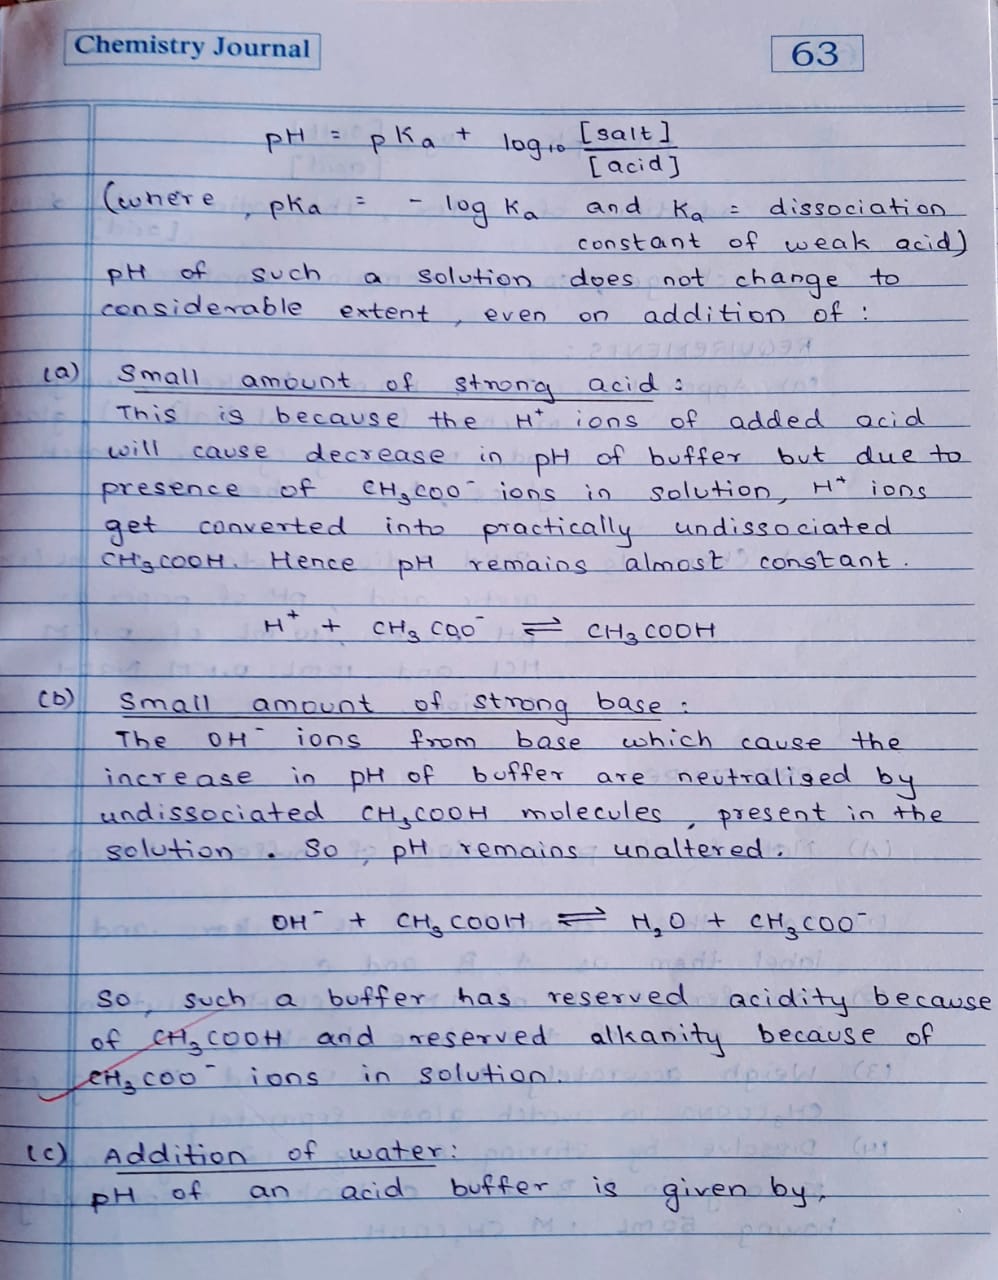 Chemistry Journal
63
pH = pKa + log₁₀ [salt]/[acid]
(where, pKa = - log Ka and Ka = dissociation
constant of weak acid)
pH of such a solution does not change to
considerable extent, even on addition of :
(a) Small amount of strong acid :
This is because the H⁺ ions of added acid
will cause decrease in pH of buffer but due to
presence of CH₃COO⁻ ions in solution, H⁺ ions
get converted into practically undissociated
CH₃COOH. Hence pH remains almost constant.
H⁺ + CH₃COO⁻ ⇌ CH₃COOH
(b) Small amount of strong base :
The OH⁻ ions from base which cause the
increase in pH of buffer are neutralised by
undissociated CH₃COOH molecules, present in the
solution. So, pH remains unaltered.
OH⁻ + CH₃COOH ⇌ H₂O + CH₃COO⁻
So, such a buffer has reserved acidity because
of CH₃COOH and reserved alkanity because of
CH₃COO⁻ ions in solution.
(c) Addition of water:
pH of an acid buffer is given by,